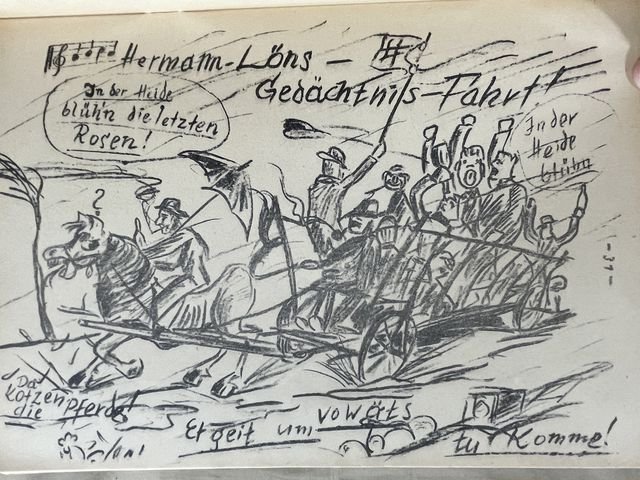 Hermann-Löns –
Gedächtnis-Fahrt!
In der Heide
blüh'n die letzten
Rosen!
In der
Heide
blühn
?
- 31 -
Da
Kotzen
die Pferde!
Er geit um vowärts
tu Komme!